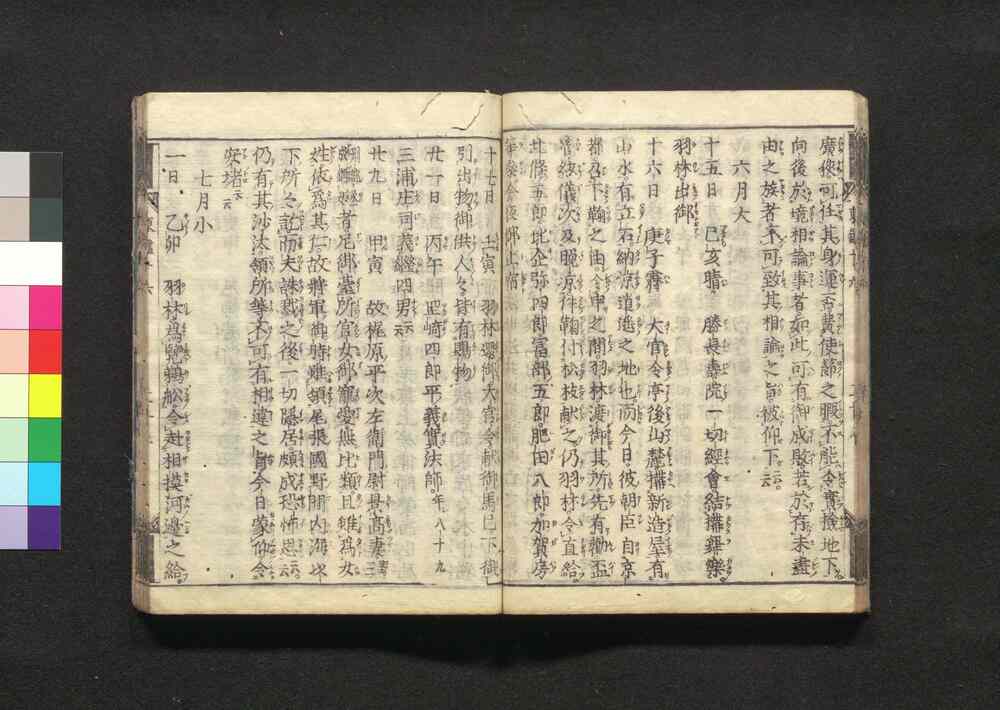 廣狹可任其身運否費使節之暇不能令實撿地下
向後於境相論事者如此可有御成敗若於存未盡
由之族者不可致其相論之旨被仰下云云
六月大
十五日 己亥晴 勝長壽院一切經會結搆舞樂
羽林出御
十六日 庚子霽 大官令亭後山麓搆新造屋有
山水有立石納凉逍遥之地也而今日彼朝臣自京
招召下鞠之由令申之間羽林渡御其所先有勸盃
管絃儀次及晩凉件鞠付松枝献之仍羽林令直給
北條五郎比企弥四郎富部五郎肥田八郎加賀房
等參會今夜御止宿
十七日 壬寅 羽林還御大官令献御馬已下御
引出物御供人々皆有賜物
廿一日 丙午 岡崎四郎平義實法師年八十九
三浦庄司義繼四男云云
廿九日 甲寅 故梶原平次左衛門尉景高妻
者尼御臺所官女御寵愛無比類且雖爲女
姓依爲其仁故將軍御時雖領尾張國野間内海以
下所々訖而夫誅戮之後一切隠居頗成恐怖思云云
仍有其沙汰領所等不可有相違之旨今日蒙仰令
安堵云云
七月小
一日 乙卯 羽林爲覽鵜舩令赴相摸河邊之給